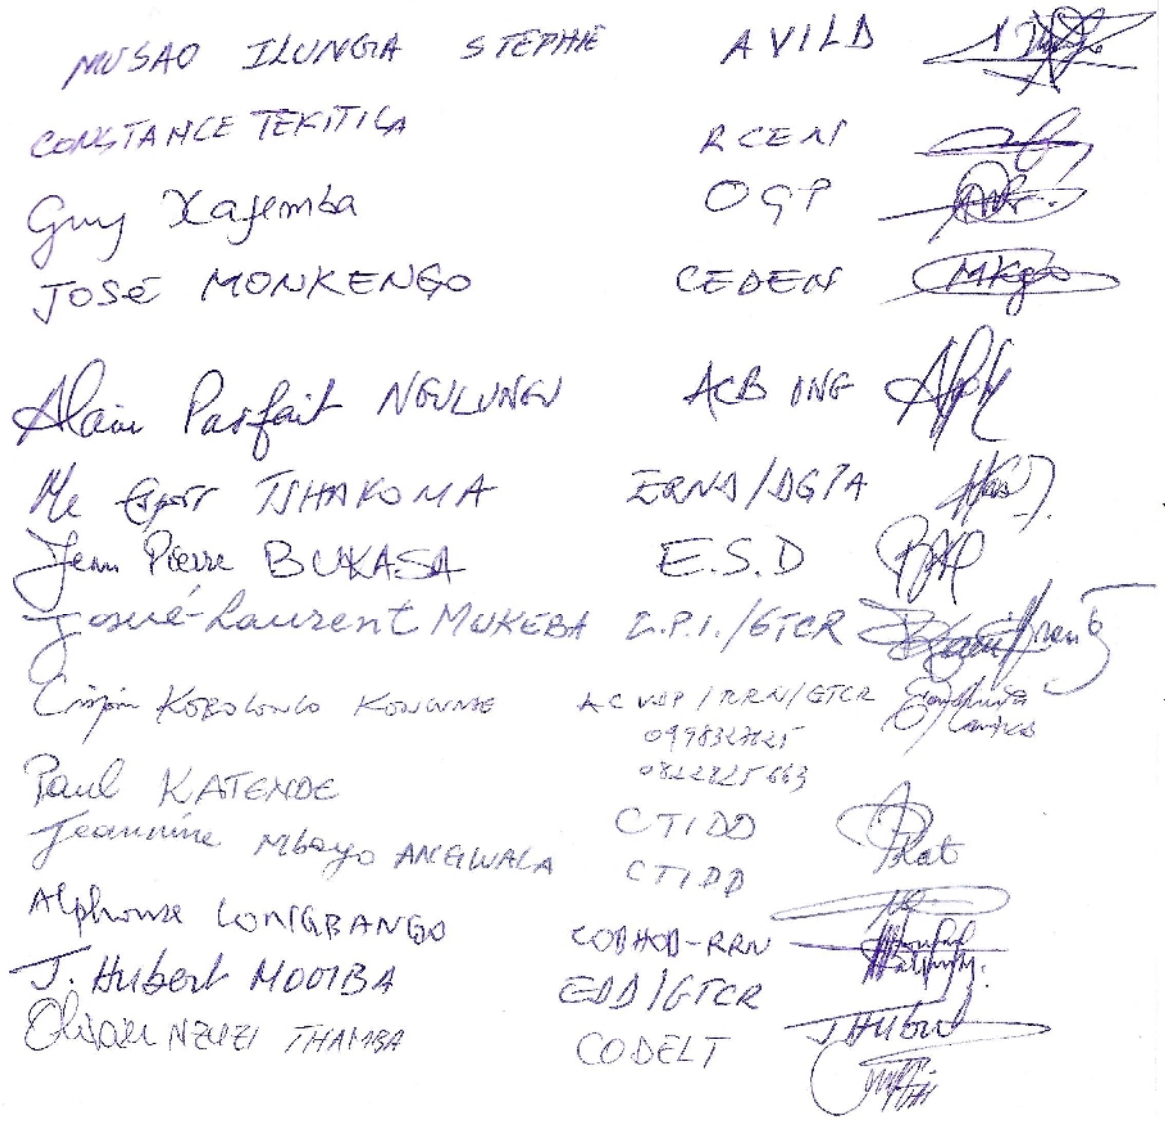 MUSAO ILUNGA STEPHIE AVILD
CONSTANCE TEKITILA RCEN
Guy Kajemba OGP
JOSÉ MONKENGO CEDEN MKgo
Alain Parfait NGULUNGU ACB ONG
Me TSHAKOMA ERND/DGPA
Jean Pierre BUKASA E.S.D
Josué-Laurent MUKEBA L.P.I./GTCR
Crispin KOBOLONGO KONUNDE ACVDP/RRN/GTCR
0998327825
0822825663
Paul KATENDE CTIDD
Jeannine Mbayo ANGWALA CTIDD
Alphonse LONGBANGO CODHOD-RRN
J. Hubert MOOMBA EDD/GTCR
Olivier NZUZI THAMBA CODELT
JHubert